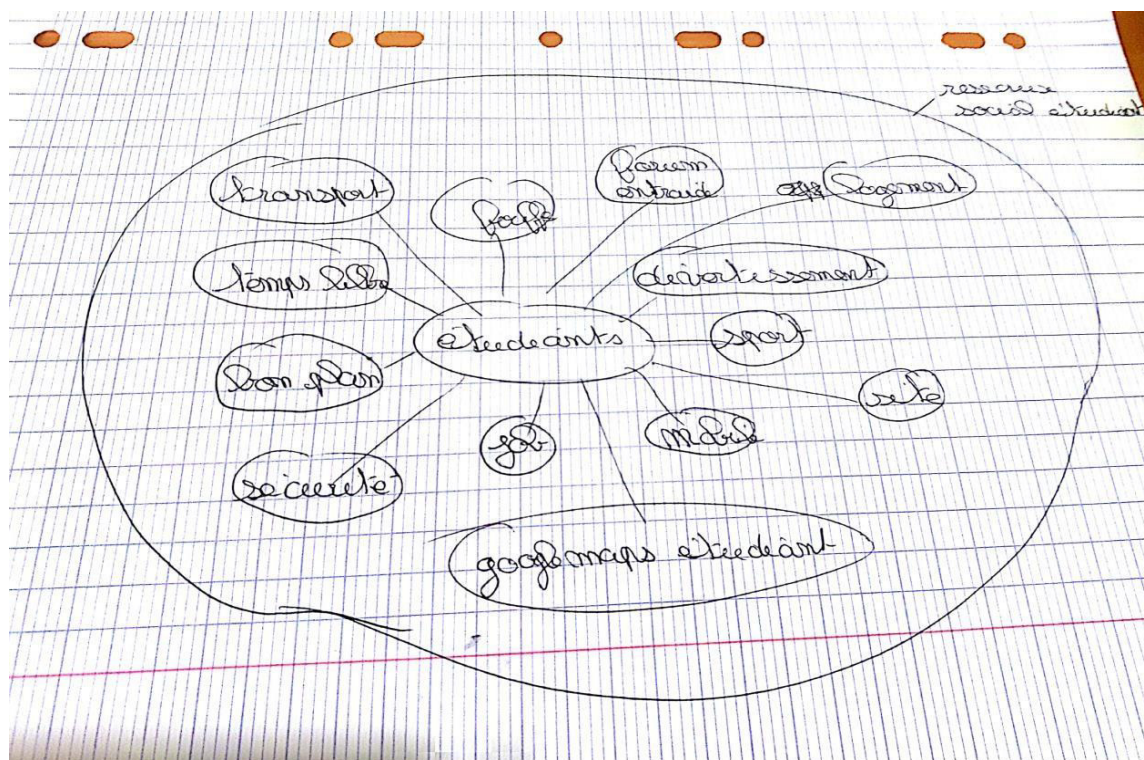 reseaux
social étudiant
transport
forum
entraide
logement
temps libre
divertissement
étudiants
sport
bon plan
job
sécurité
googlemaps étudiant